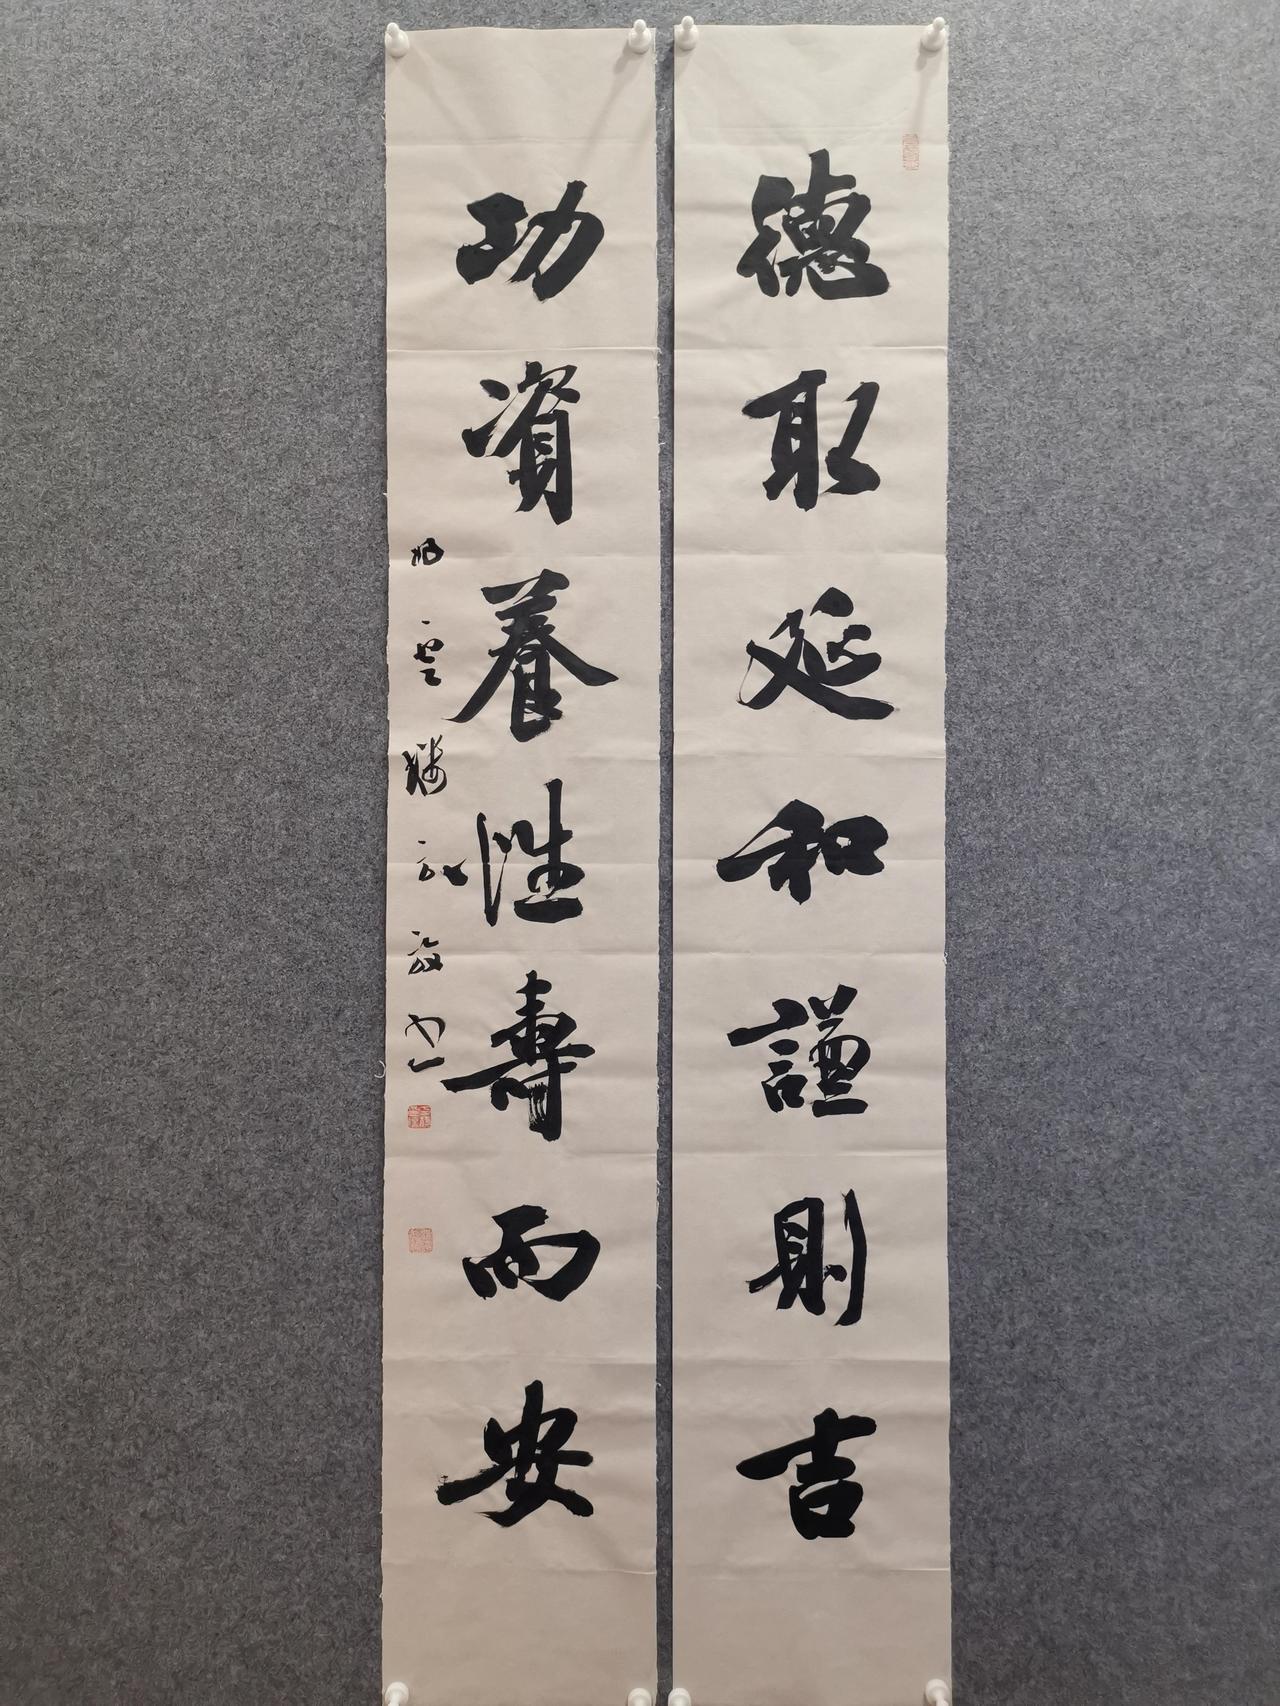 德取延和謙則吉
功資養性壽而安